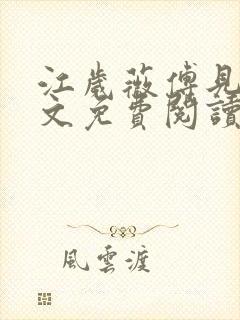 江歲薇傅見
文免費閱讀
風雲渡